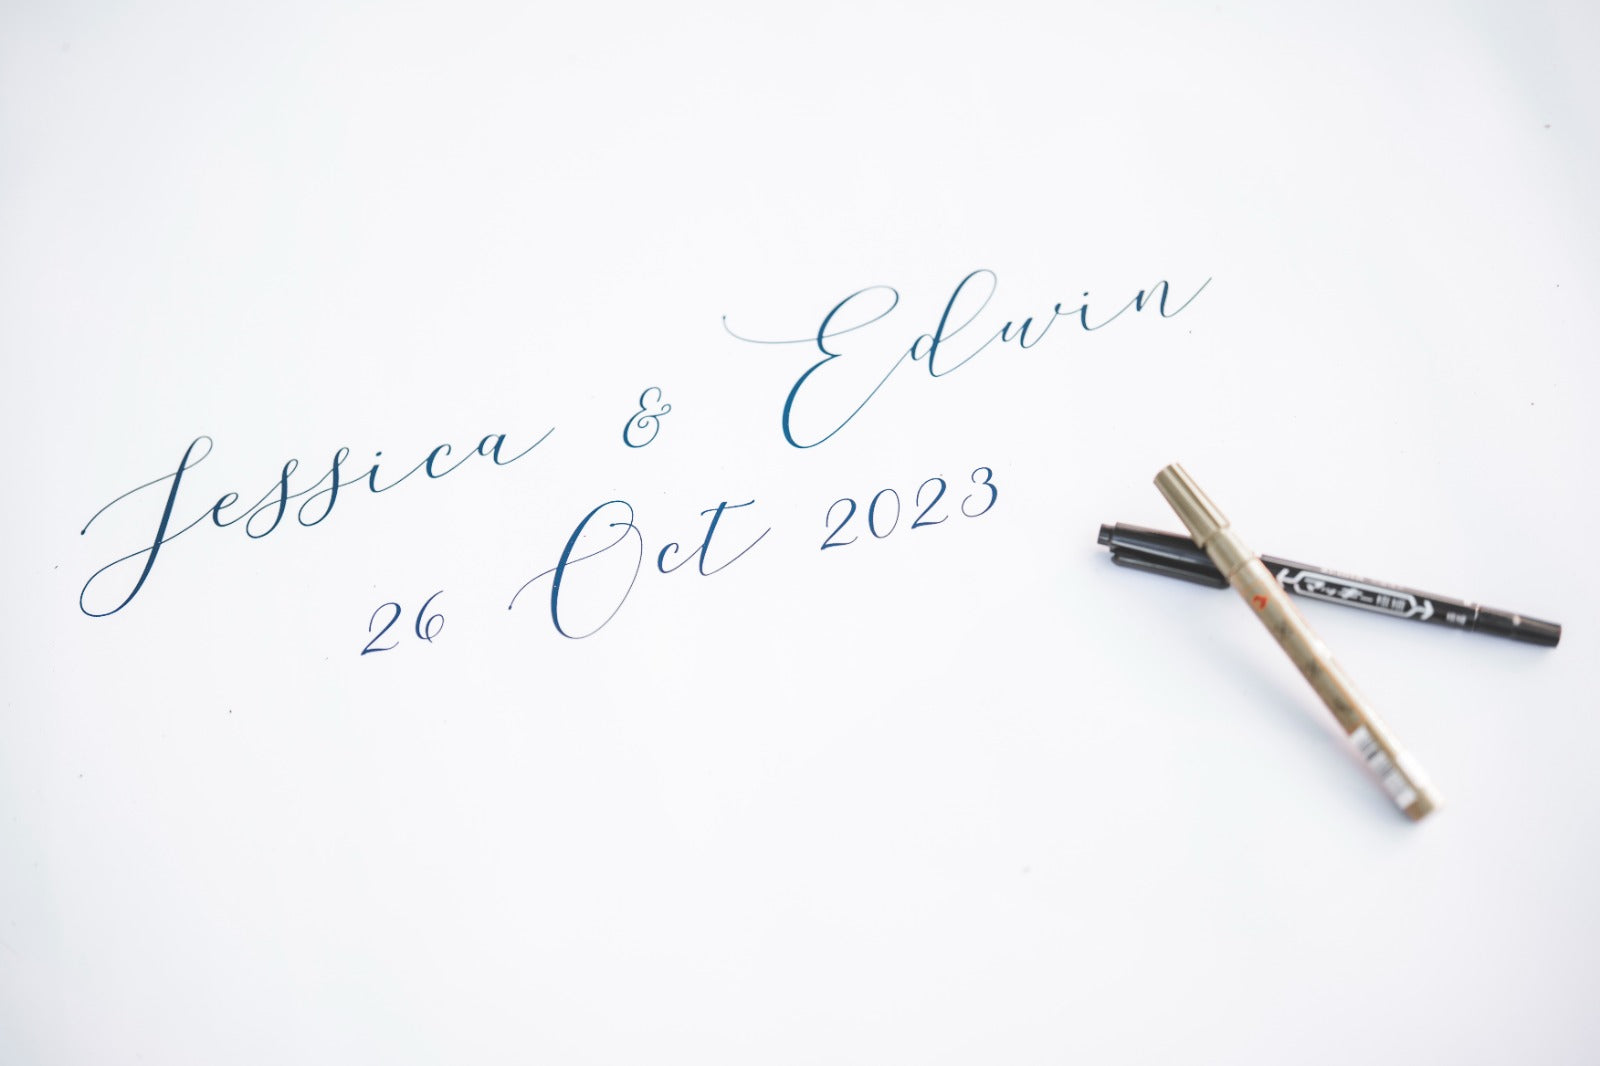 Jessica & Edwin
26 Oct 2023